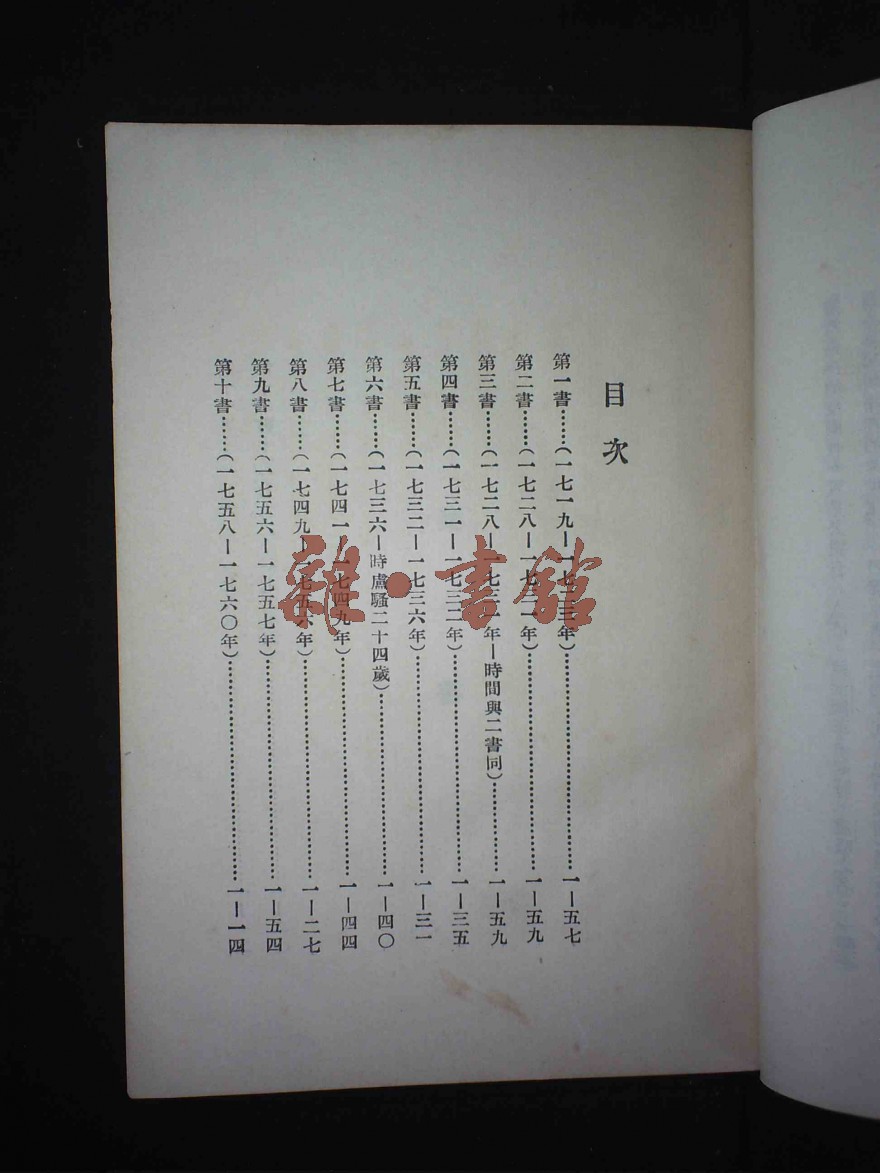 目次
第一書……(一七一九—一七二三年)……一—五七
第二書……(一七二八—一七三一年)……一—五九
第三書……(一七二八—一七三一年—時間與二書同)……一—五九
第四書……(一七三一—一七三二年)……一—三五
第五書……(一七三二—一七三六年)……一—三一
第六書……(一七三六—時盧騷二十四歲)……一—四〇
第七書……(一七四一—一七四九年)……一—四四
第八書……(一七四九—一七五六年)……一—二七
第九書……(一七五六—一七五七年)……一—五四
第十書……(一七五八—一七六〇年)……一—一四
雜·書館